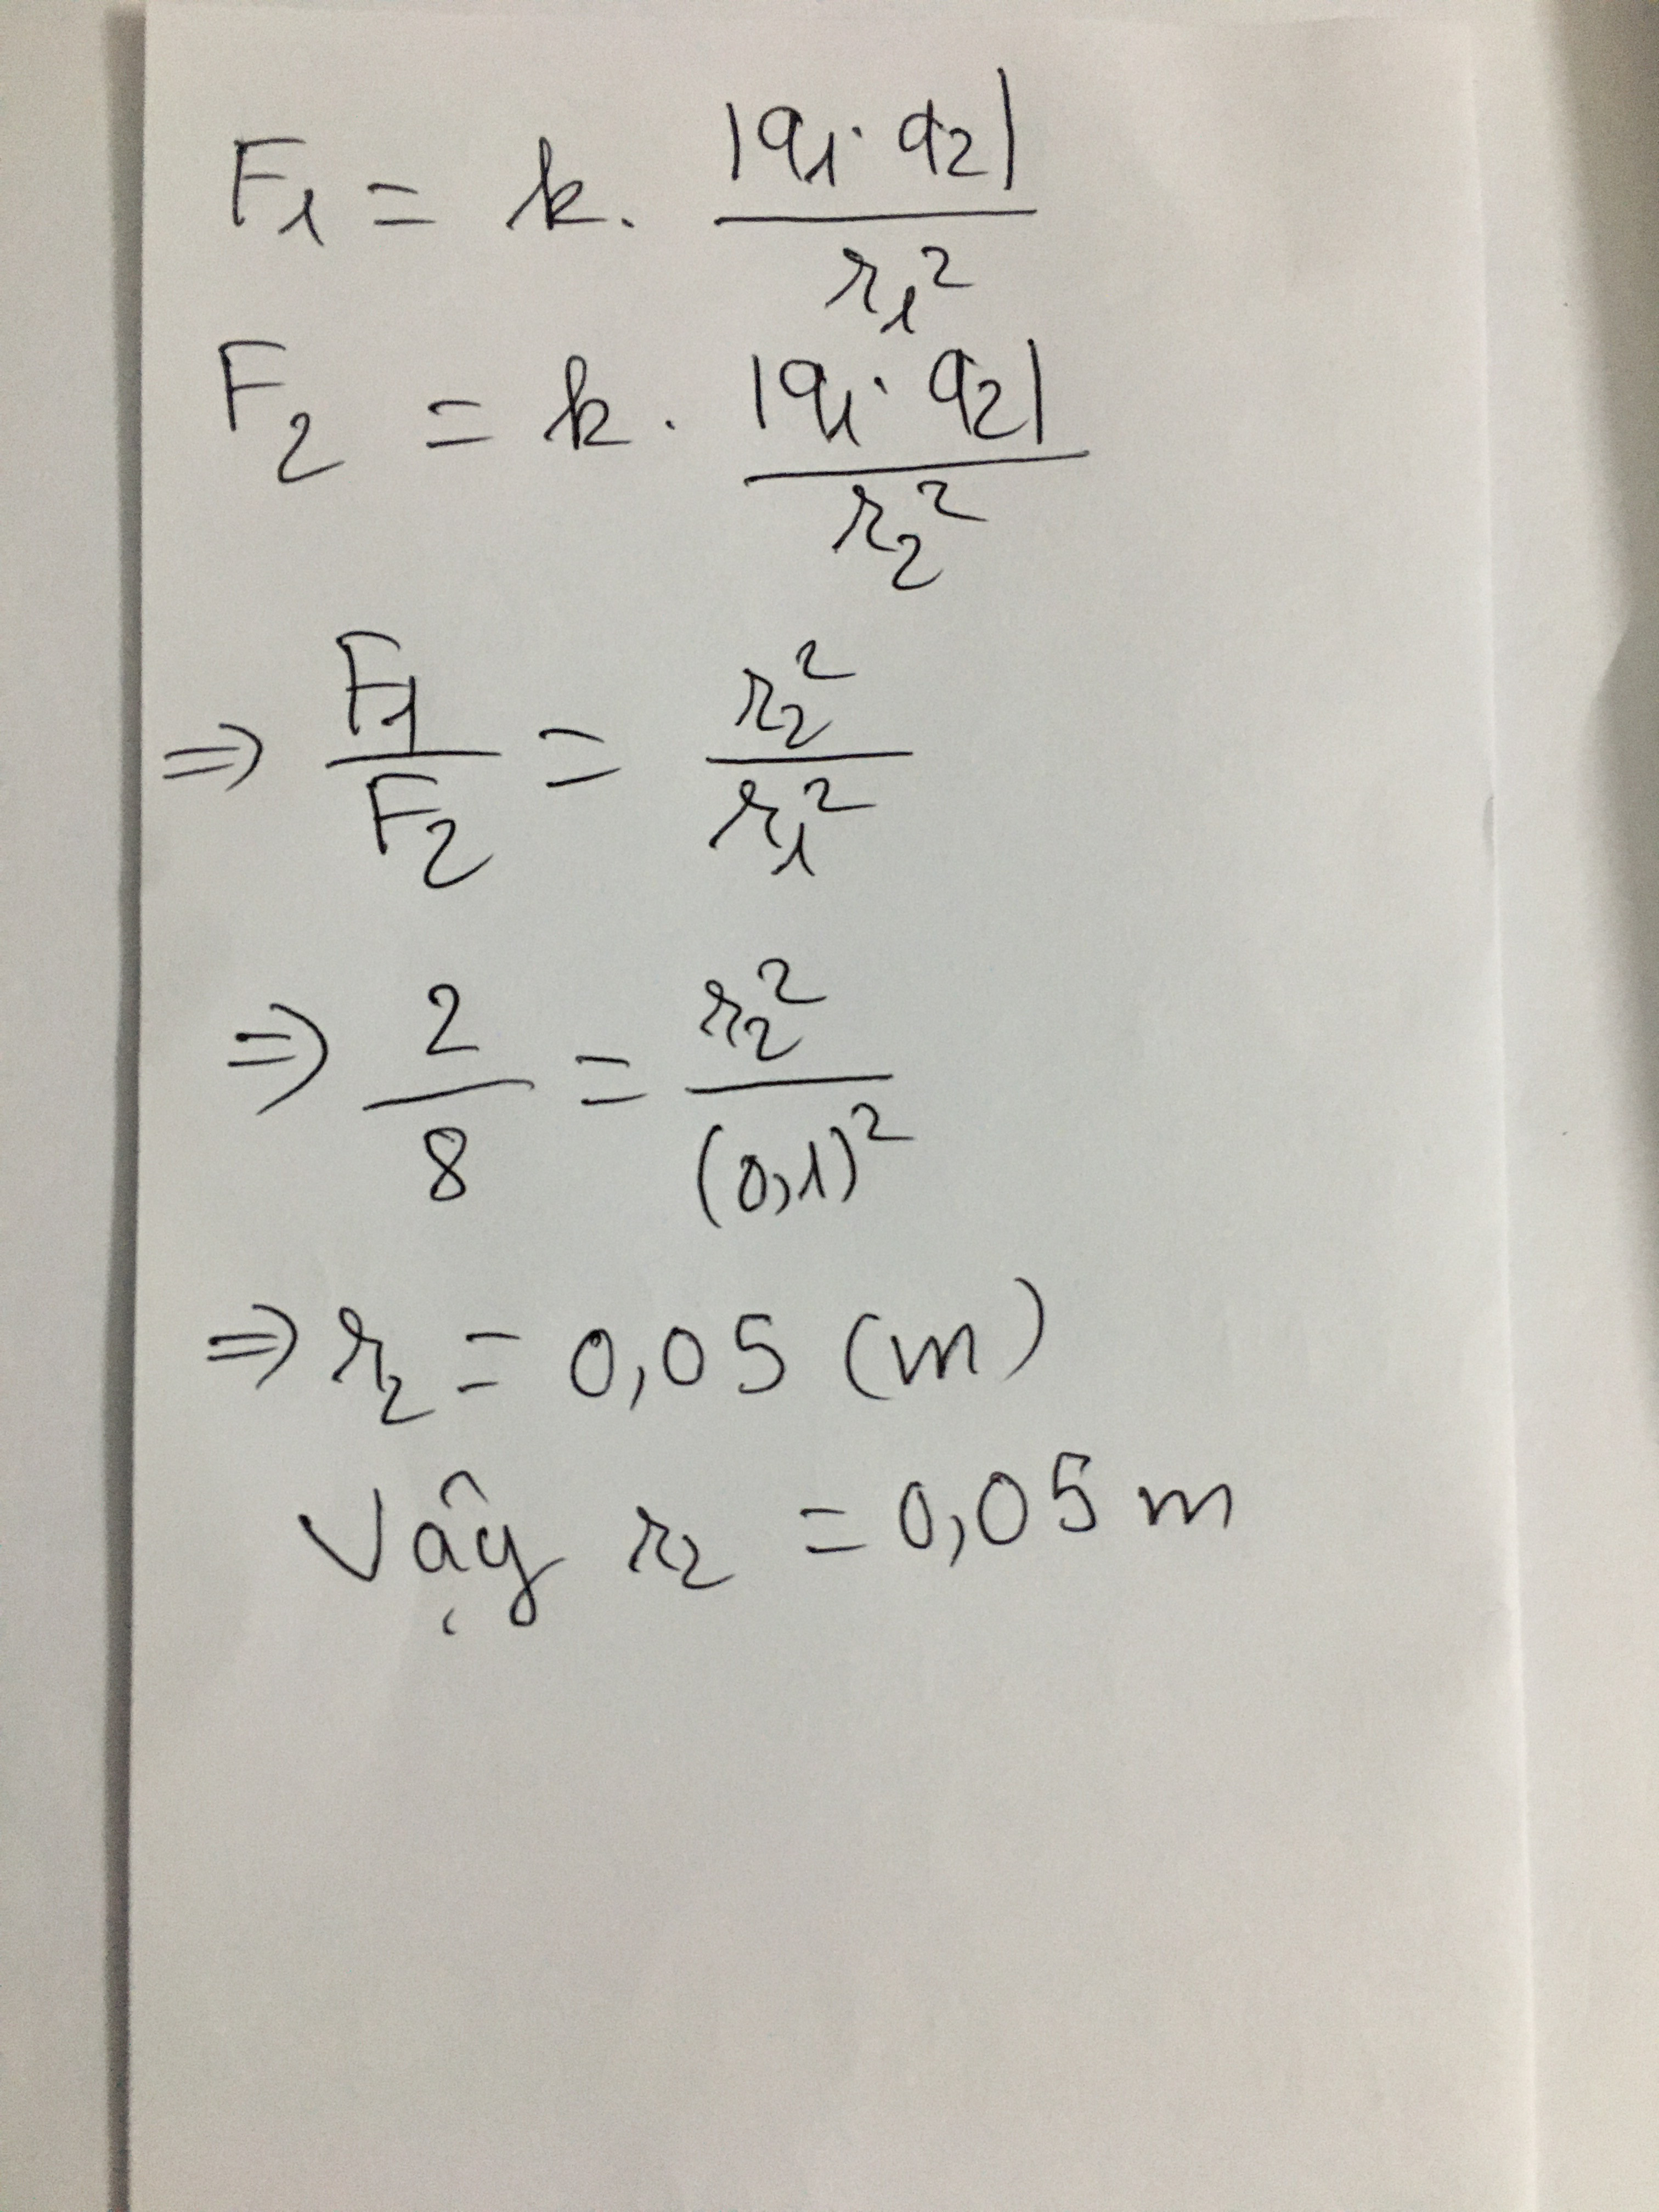 F₁ = k. |q₁. q₂| / r₁²
F₂ = k. |q₁. q₂| / r₂²
=> F₁ / F₂ = r₂² / r₁²
=> 2 / 8 = r₂² / (0,1)²
=> r₂ = 0,05 (m)
Vậy r₂ = 0,05 m